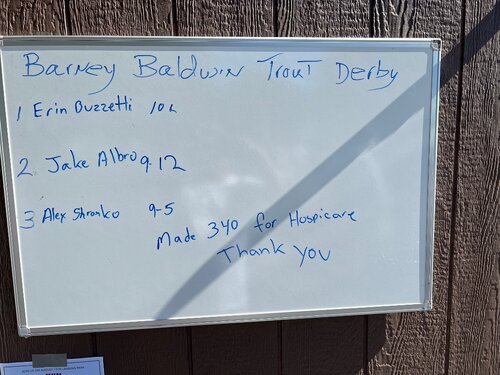 Barney Baldwin Trout Derby
1 Erin Buzzetti
2 Jake Albro 9-12
3 Alex Shronko 9-5
Made 340 for Hospicare
Thank you